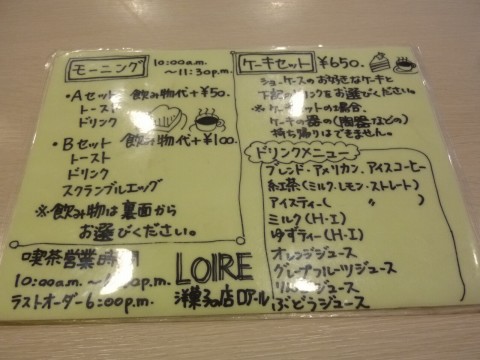 モーニング 10:00a.m.
〜11:30p.m.
・Aセット 飲み物代+¥50.
トースト
ドリンク
・Bセット 飲み物代+¥100.
トースト
ドリンク
スクランブルエッグ
※飲み物は裏面から
お選びください。
喫茶営業時間
10:00a.m.〜 p.m.
ラストオーダー6:00p.m.
LOIRE
洋菓子の店ロアール
ケーキセット ¥650.
ショーケースのお好きなケーキと
下記のドリンクをお選びください。
※ケーキセットの場合、
ケーキの器の(陶器などの)
持ち帰りはできません。
ドリンクメニュー
ブレンド・アメリカン・アイスコーヒー
紅茶(ミルク・レモン・ストレート)
アイスティー( 〃 )
ミルク(H・I)
ゆずティー(H・I)
オレンジジュース
グレープフルーツジュース
りんごジュース
ぶどうジュース